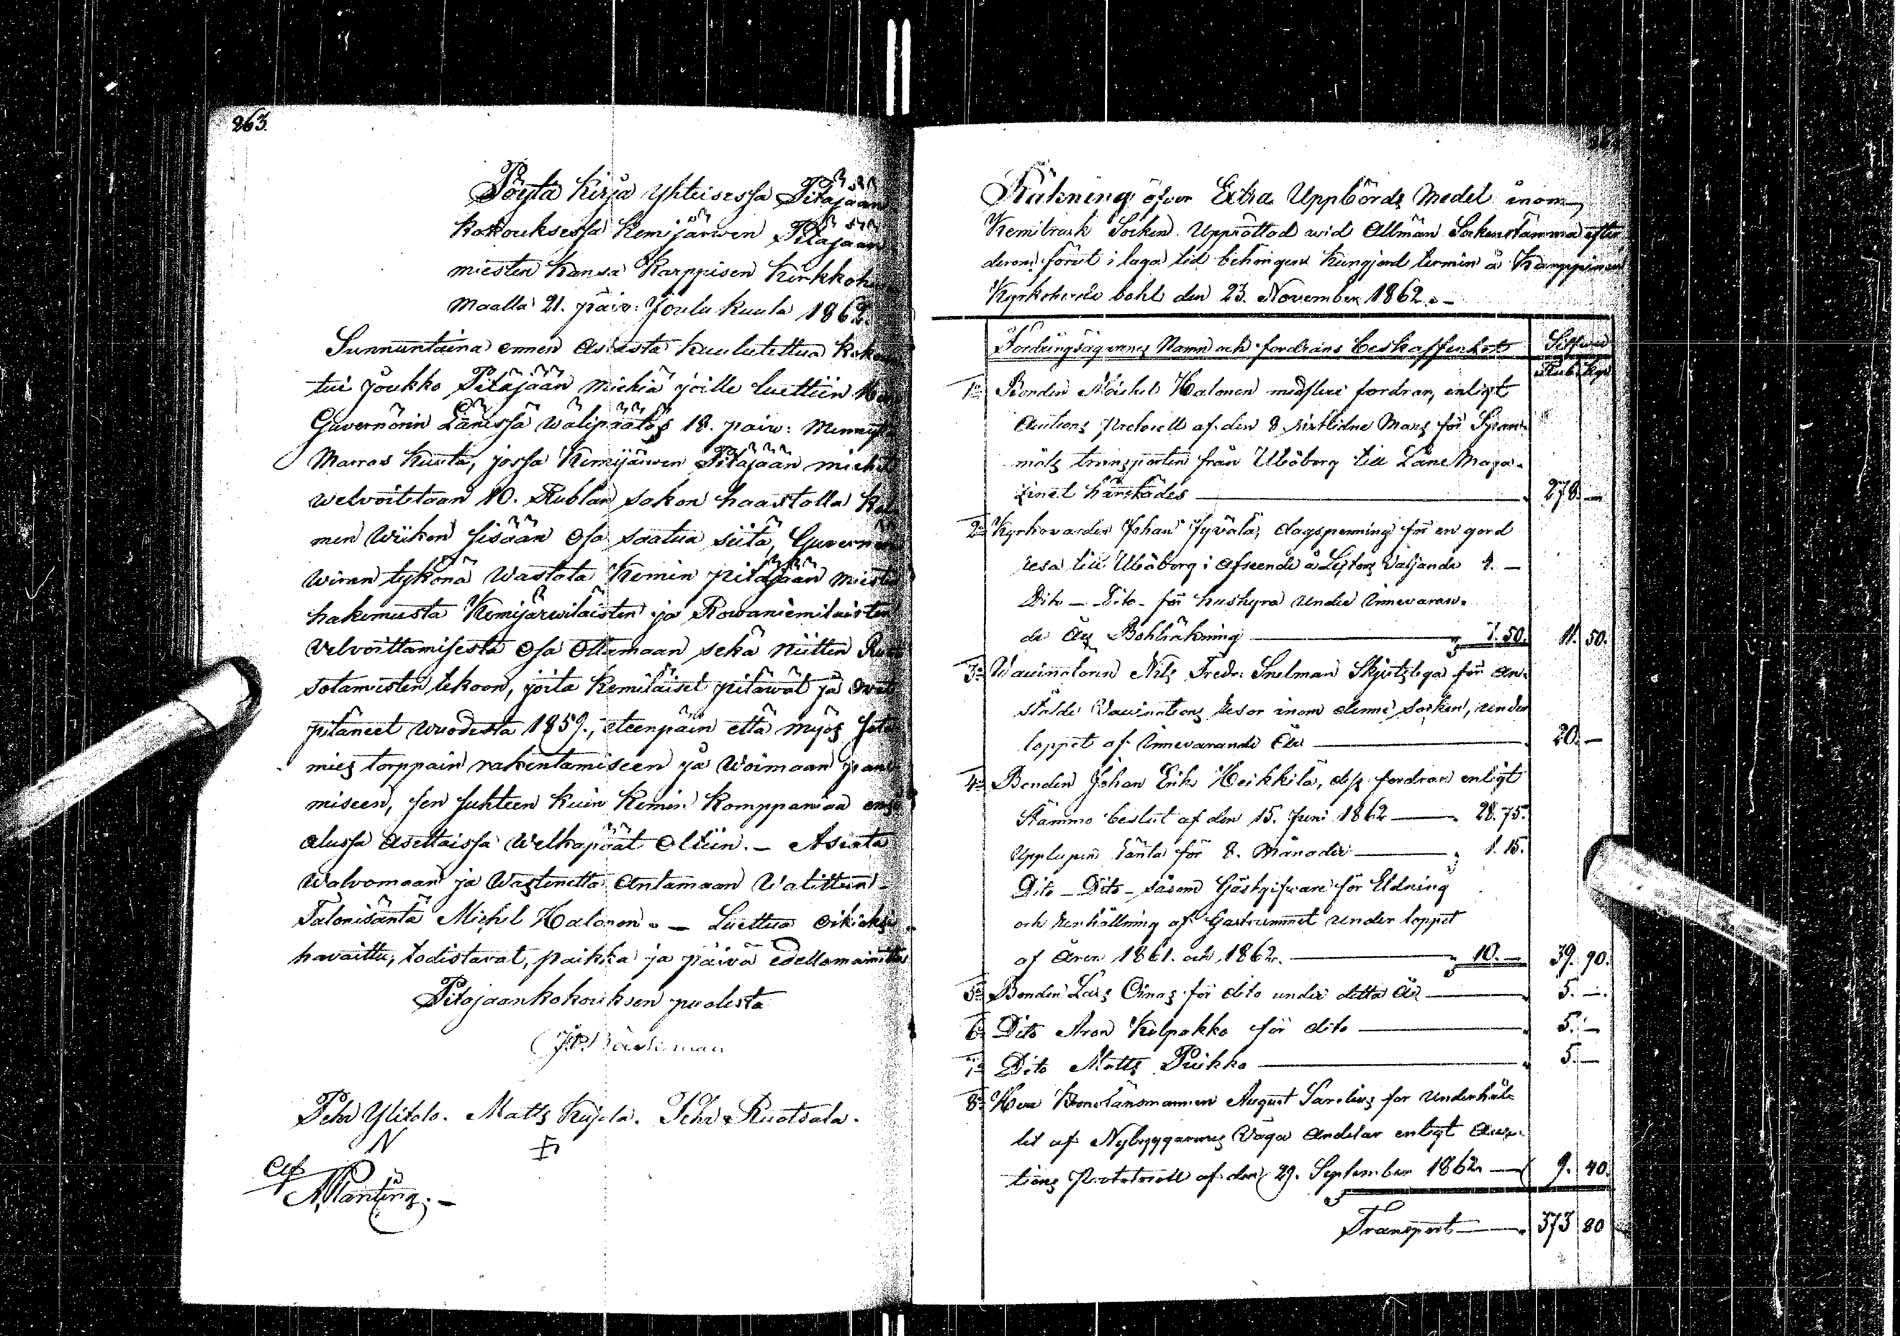 263.
Pöytä Kirja Yhteisessä Pitäjään
Kokouksessa Kemijärwen Pitäjään
miesten kansa Karppisen Kirkkoh
maalla 21. päiv: Joulu kuula 1862.
Sunnuntaina ennen asiasta kuulutettua koko
tui joukko Pitäjään miehiä joille luettiin
Guvernörin Länissä wälipäätös 18. päiw: mennyttä
Marras kuuta, jossa Kemijärwen Pitäjään miehet
welvoitetaan 10. Rublan sakon haastolla
men Wiikon sisään osa saatua siitä, Guvernörin
wiran tykönä wastata Kemin pitäjään miesten
hakemusta Kemijärwiläisten ja Rowaniemiläisten
velvoittamisesta osa ottamaan sekä niitten
sotamiesten tekoon, joita Kemiläiset pitäwät ja owat
pitäneet wuodesta 1859., eteenpäin että myös sota
mies torppain rakentamiseen ja woimaan pane
miseen, sen suhteen kuin Kemin Komppaniaa
alussa asettaissa welkapäät oltiin. – Asiata
walvomaan ja wastinetta antamaan Valittiin
Talonisäntä Michel Halonen. – Luettua oikiaksi
havaittu, todistavat, paikka ja päivä edellämainittu
Pitäjaankokouksen puolesta
Pehr Ylitalo. Matts Kujala. Pehr Ruotsala.
N
Räkning öfver Extra Uppbörds Medel inom
Kemiträsk Socken Upprättad wid Allmän Sockenstämma efter
derom förut i laga tid behörigen kungjord termin å Karppinen
Kyrkoherde bohl den 23. November 1862. –
Fordringsägarenes Namn och fordrans beskaffenhet Silfver
Rub. Kop.
1o Bonden Michel Halonen fordran, enligt
Auctions Protocoll af den 8 sistlidne Mars för Spann
måls transporten från Uleåborg till Läne Maga-
zinet härstädes 278. –
2o Kyrkovärden Johan Jyvälä, dagspenning för en gjord
resa till Uleåborg i afseende å Väljande 4. –
Dito – Dito – för hushyra under innevaran-
de års Bohlräkning 7. 50. 11. 50.
3o Vaccinatoren Nils Fredr. Snelman Skjutslega för an-
ställde Vaccinations resor inom denne socken, under
loppet af innevarande år 20. –
4o Bonden Johan Erik Heikkilä, dess fordran enligt
Stämmo beslut af den 15. Juni 1862 28. 75.
Upplupen ränta för 8. Månader 1. 15.
Dito – Dito – såsom Gästgifvare för Eldning
och renhållning af Gästrummet under loppet
af åren 1861. och 1862. 10. – 39. 90.
5o Bonden Lars Oinas för dito under detta år 5. –
6o Dito Aron Kilpakko för dito 5. –
7o Dito Matts Puikko 5. –
8o Herr Kronolänsmannen August Sarelius för Underhål-
let af Nybyggarnes Väga andelar enligt Auc-
tions Protocoll af den 29. September 1862 9. 40.
Transport 373 80